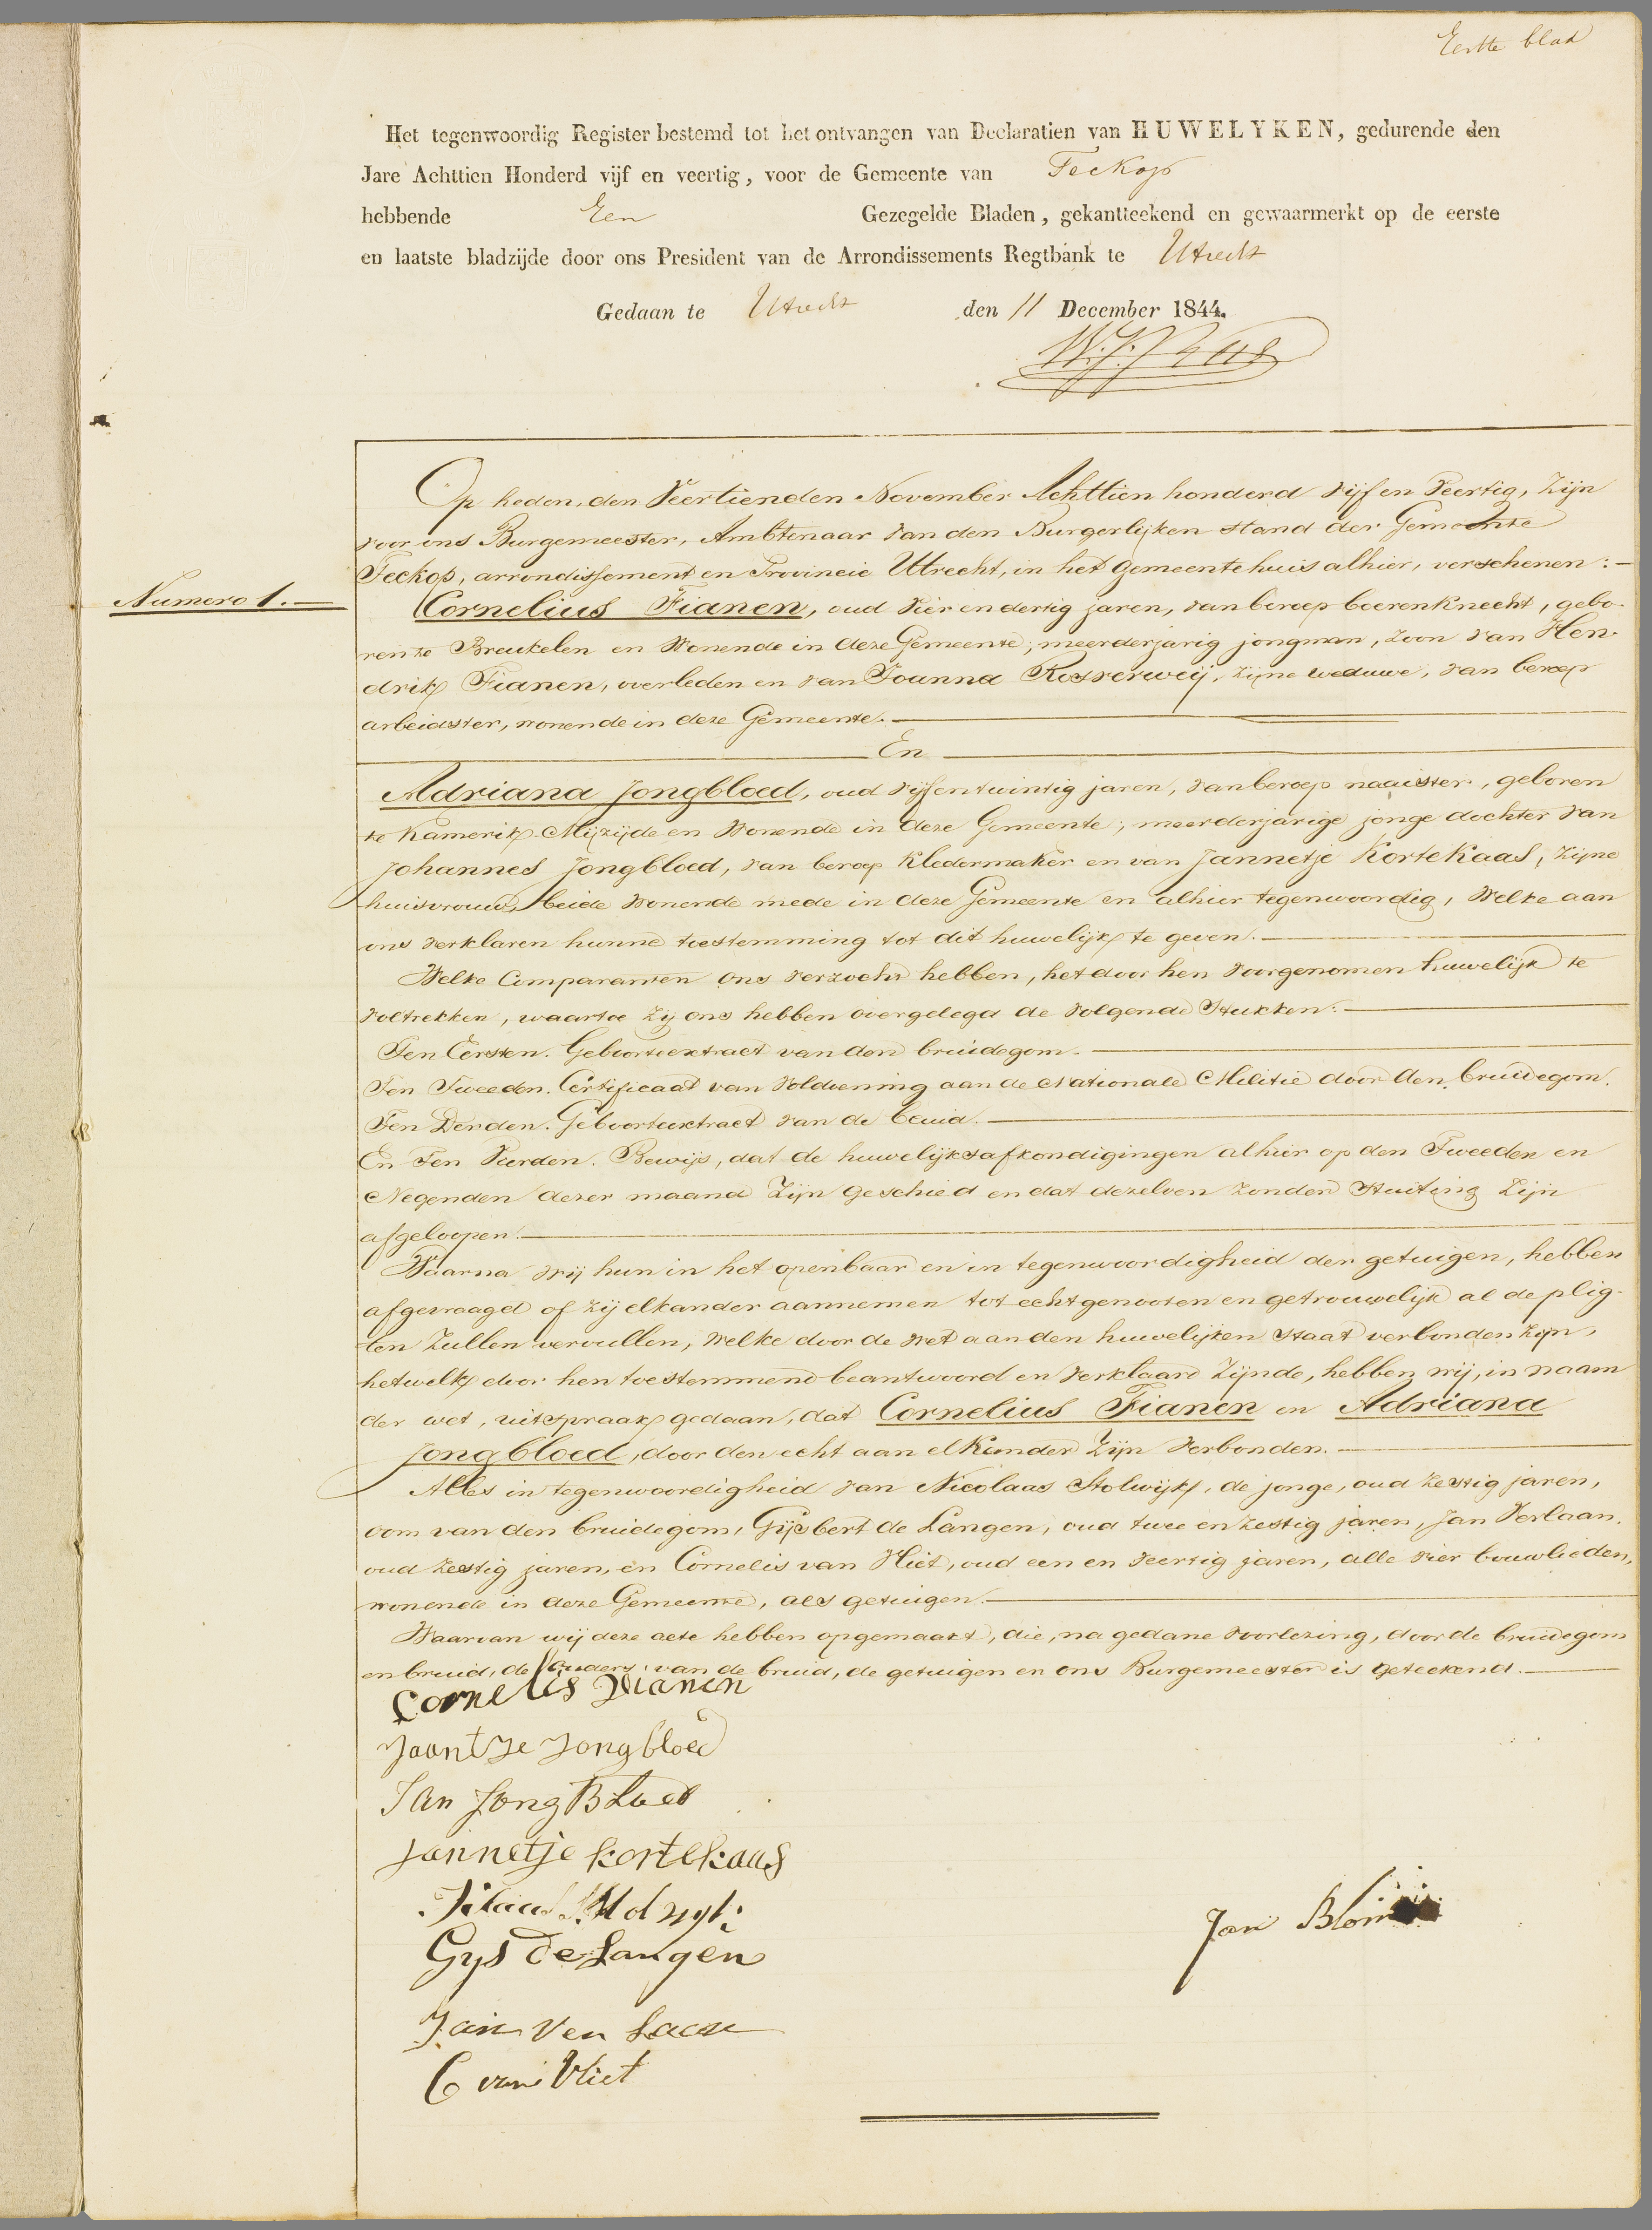 Eerste blad
Het tegenwoordig Register bestemd tot het ontvangen van Declaratien van HUWELYKEN, gedurende den
Jare Achttien Honderd vijf en veertig, voor de Gemeente van Teckop
hebbende Een Gezegelde Bladen, gekantteekend en gewaarmerkt op de eerste
en laatste bladzijde door ons President van de Arrondissements Regtbank te Utrecht
Gedaan te Utrecht den 11 December 1844.
Op heden, den Veertienden November Achttien honderd vijf en Veertig, zijn
voor ons Burgemeester, Ambtenaar van den Burgerlijken stand der Gemeente
Teckop, arrondissement en Provincie Uttrecht, in het gemeentehuis alhier, verschenen:
Numero 1.
Cornelius Fianen, oud vier en dertig jaren, van beroep boerenknecht, gebo-
ren te Breukelen en Wonende in deze Gemeente; meerderjarig jongman, zoon van Hen-
drik Fianen, overleden en van Joanna Rosserweij, zijne weduwe, van beroep
arbeidster, wonende in deze Gemeente.
En
Adriana Jongbloed, oud vijfentwintig jaren, van beroep naaister, geboren
te Kamerik-Mijzijde en Wonende in deze Gemeente; meerderjarige jonge dochter van
Johannes Jongbloed, van beroep kledermaker en van Jannetje Kortekaas, zijne
huisvrouw, beide wonende mede in deze Gemeente en alhier tegenwoordig, Welke aan
ons verklaren hunne toestemming tot dit huwelijk te geven.
Welke Comparanten ons verzocht hebben, het door hen voorgenomen huwelijk te
voltrekken, waartoe zij ons hebben overgelegd de volgende Stukken:
Ten Eersten. Geboorteextract van den bruidegom.
Ten Tweeden. Certificaat van Voldoening aan de Nationale Militie door den bruidegom.
Ten Derden. Geboorteextract van de bruid.
En Ten Vierden. Bewijs, dat de huwelijksafkondigingen alhier op den Tweeden en
Negenden dezer maand zijn geschied en dat dezelven zonder Stuiting zijn
afgeloopen.
Waarna wij hun in het openbaar en in tegenwoordigheid der getuigen, hebben
afgevraagd of zij elkander aannemen tot echtgenooten en getrouwelijk al de plig-
ten zullen vervullen, Welke door de Wet aan den huwelijken staat verbonden zijn,
hetwelk door hen toestemmend beantwoord en verklaard zijnde, hebben wij, in naam
der wet, uitspraak gedaan, dat Cornelius Fianen en Adriana
Jongbloed, door den echt aan elkander zijn verbonden.
Alles in tegenwoordigheid van Nicolaas Stolwijk, de jonge, oud zestig jaren,
oom van den bruidegom, Gijsbert de Langen, oud twee en zestig jaren, Jan Verlaan,
oud zestig jaren, en Cornelis van Vliet, oud een en veertig jaren, alle vier bouwlieden,
wonende in deze Gemeente, als getuigen.
Waarvan wij deze acte hebben opgemaakt, die, na gedane voorlezing, door de bruidegom
en bruid, de Ouders van de bruid, de getuigen en ons Burgemeester is geteekend.
Cornelis Dianen
Jaantje Jongbloed
Jan Jong Bloed
Jannetje kortekaas
Gys de Langen
Jan Ver Laan
C van Vliet
Jan